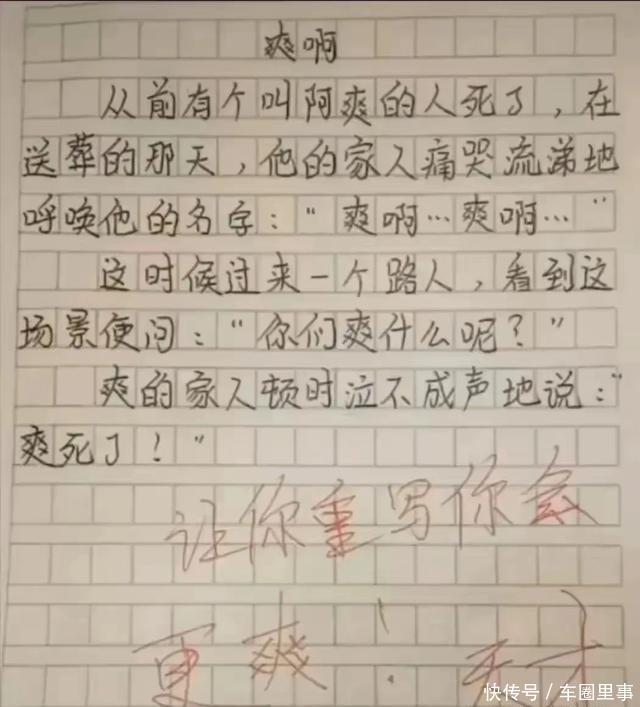 爽啊
从前有个叫阿爽的人死了，在
送葬的那天，他的家人痛哭流涕地
呼唤他的名字：“爽啊…爽啊…”
这时候过来一个路人，看到这
场景便问：“你们爽什么呢？”
爽的家人顿时泣不成声地说：“
爽死了！”
让你重写你会
更爽！天才
快传号／车圈里事